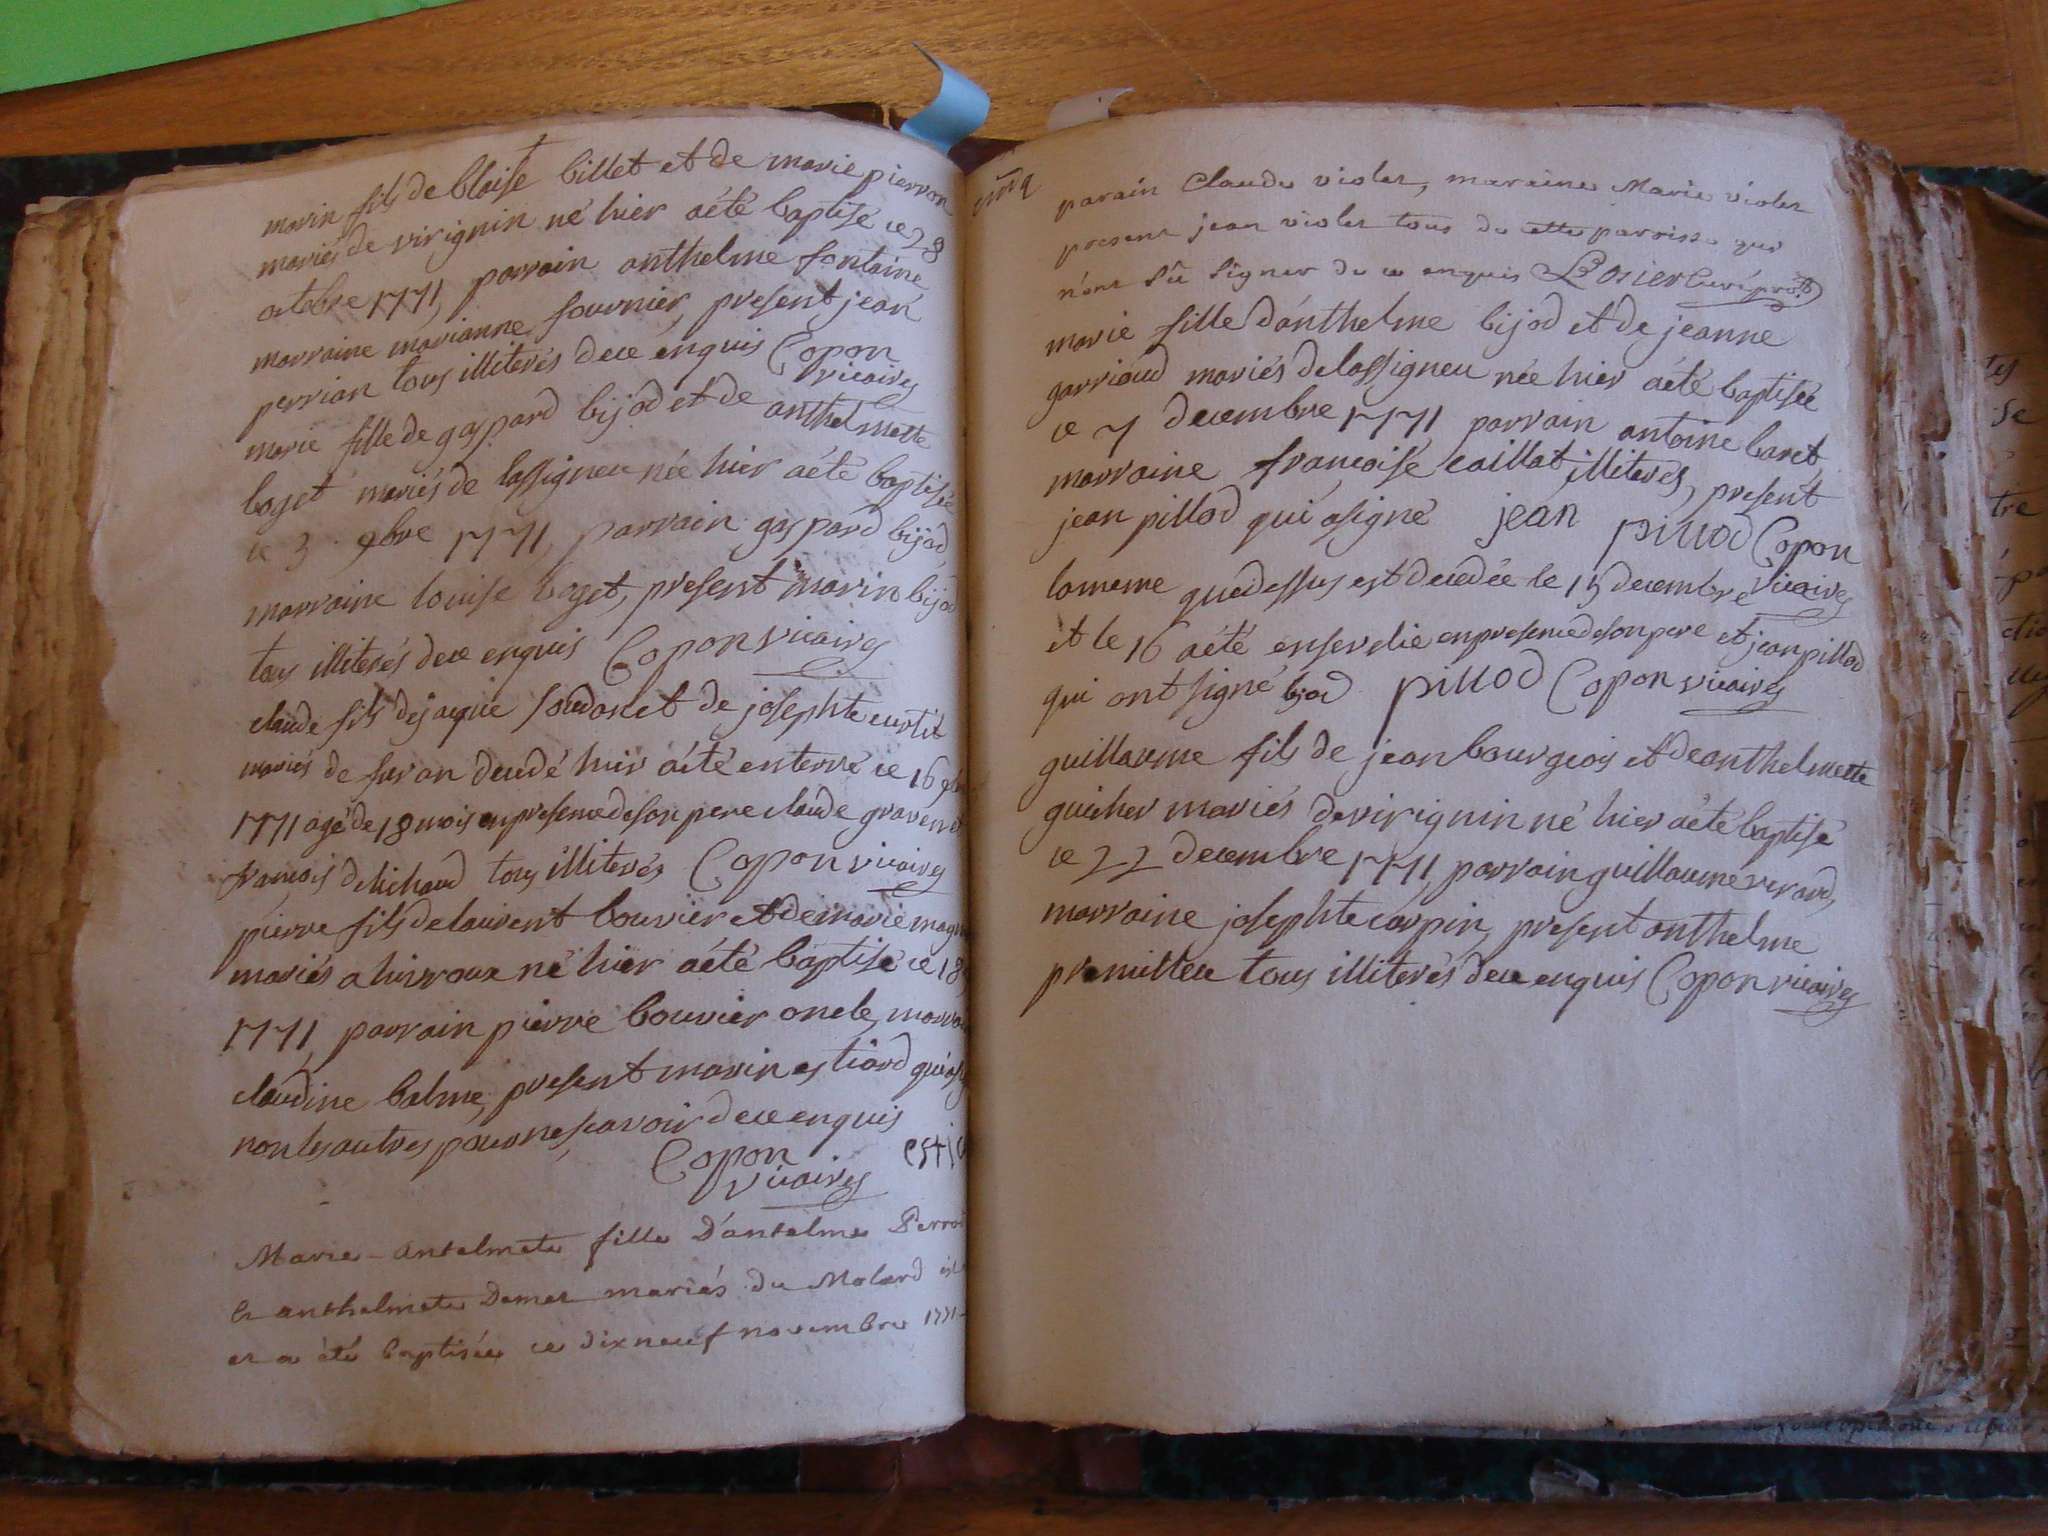 marin fils de blaise billet et de marie pierron
mariés de virignin né hier a été baptisé ce 28
octobre 1771, parrain anthelme fontaine
marraine marianne fournier, present jean
perrian tous illiterés de ce enquis Copon
vicaires
marie fille de gaspard bijod et de anthelmette
boget mariés de lassigneu née hier a été baptisée
ce 3 9bre 1771, parrain gaspard bijod,
marraine louise boget, present marin bijod
tous illiterés de ce enquis Copon vicaires
claude fils de jacque et de josephte curtit
mariés de decedé hier a été enterré ce 16 9bre
1771 agé de 18 mois en presence de son pere claude
françois tous illiterés Copon vicaires
pierre fils de laurent bouvier et de marie
mariés a né hier a été baptisé ce 18
1771, parrain pierre bouvier oncle,
claudine balme, present marin estiard qui a
non les autres pour ne scavoir de ce enquis
Copon
vicaires
Marie-antelmete fille D'antelme
et anthelmete Demet mariés du Molard
et a été baptisée ce dixneuf novembre 1771
cinq
parain Claude violet, maraine Marie violet
present jean violet tous de cette parroisse qui
n'ont sû signer de ce enquis Losier Curé
marie fille d'anthelme bijod et de jeanne
garrioud mariés de lassigneu née hier a été baptisée
ce 7 decembre 1771 parrain antoine baret,
marraine françoise caillat illiterés, present
jean pillod qui a signé jean pillod Copon
vicaires
la meme que dessus est decedée le 15 decembre
et le 16 a été ensevelie en presence de son pere et jean pillod
qui ont signé bijod pillod Copon vicaires
guillaume fils de jean bourgeois et de anthelmette
guicher mariés de virignin né hier a été baptisé
ce 22 decembre 1771, parrain guillaume verard,
marraine josephte carpin, present anthelme
premilleu tous illiterés de ce enquis Copon vicaires